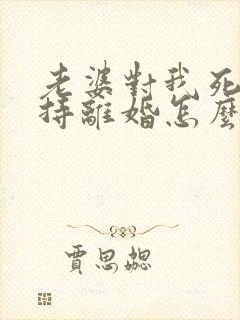 老婆對我死
持離婚怎麼
賈思勰